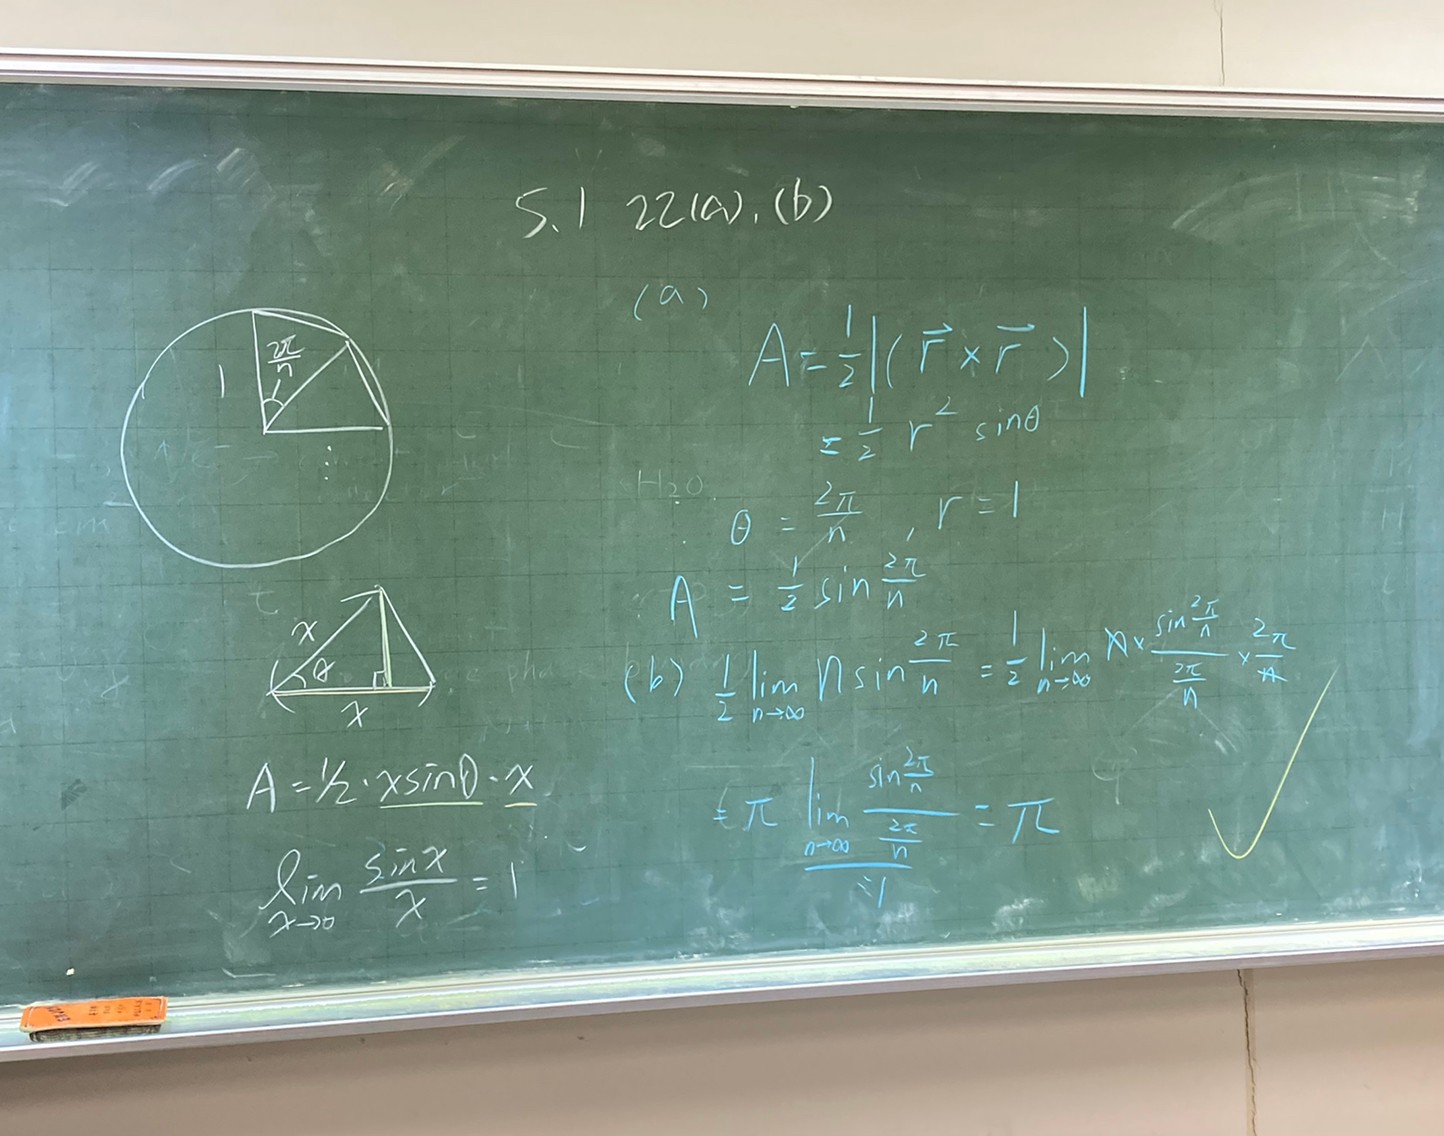 5.1 22(a).(b)
(a)
1
2π/n
A = 1/2 |(r⃗ × r⃗)|
= 1/2 r² sinθ
H₂O
θ = 2π/n , r = 1
A = 1/2 sin 2π/n
(b) 1/2 lim n→∞ n sin 2π/n = 1/2 lim n→∞ n × (sin 2π/n)/(2π/n) × 2π/n
= π lim n→∞ (sin 2π/n)/(2π/n) = π
=1
x
θ
x
A = 1/2 · x sinθ · x
lim x→0 sinx/x = 1